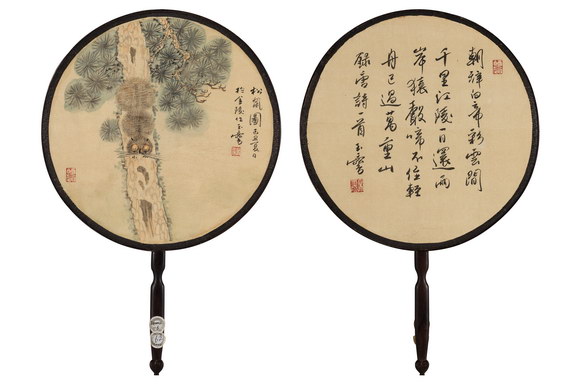 松鼠圖己丑夏日
於金陵
朝辞白帝彩雲間
千里江陵一日還兩
岸猿聲啼不住輕
舟已過萬重山
錄唐詩一首玉